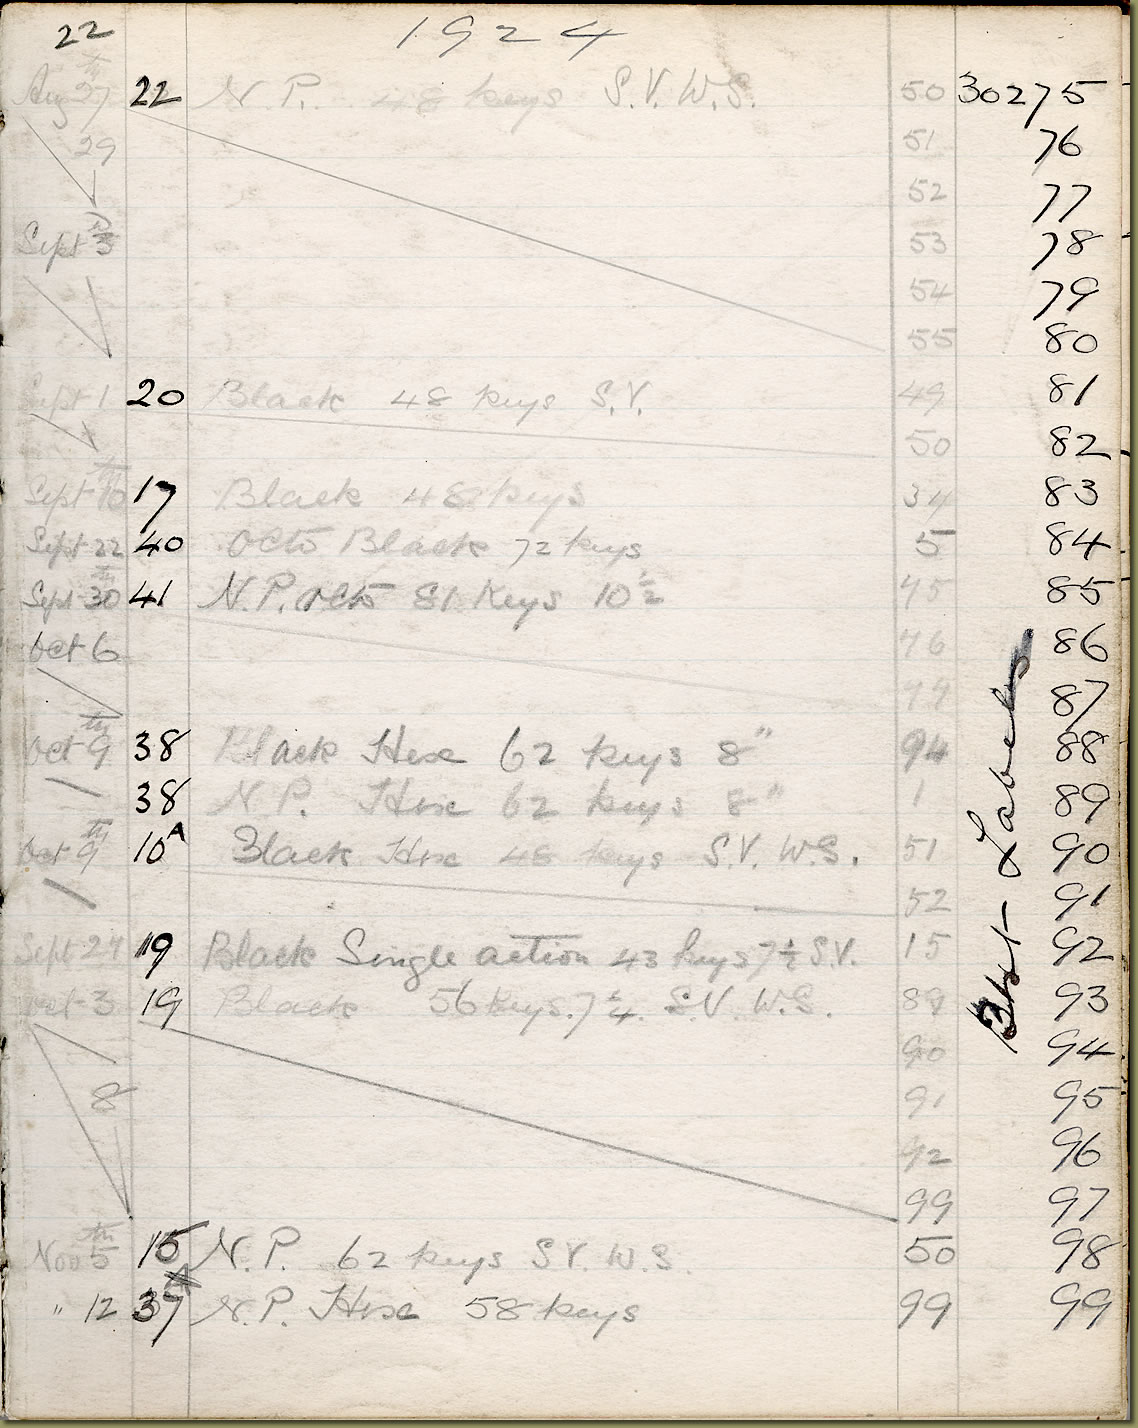 22 1924
Aug 27 22 N.P. 48 keys S.V. W.S. 50 30275
29 51 76
52 77
Sept 3 53 78
54 79
55 80
Sept 1 20 Black 48 keys S.V. 49 81
50 82
Sept 10th 17 Black 48 keys 34 83
Sept 22 40 Octo Black 72 keys 5 84
Sept 30th 41 N.P. octo 81 Keys 10 1/2 75 85
Oct 6 76 86
77 87
Oct 9th 38 Black Hexe 62 keys 8" 94 88
38 N.P. Hexe 62 keys 8" 1 89
Oct 9th 10A Black Hexe 48 keys S.V. W.S. 51 90
52 91
Sept 27 19 Black Single action 43 keys 7 1/2 S.V. 15 92
Oct 3 19 Black 56 keys. 7 1/4. S.V. W.S. 89 93
90 94
8 91 95
92 96
99 97
Nov 5th 15 N.P. 62 keys S.V. W.S. 50 98
" 12 37 N.P. Hexe 58 keys 99 99
Labels